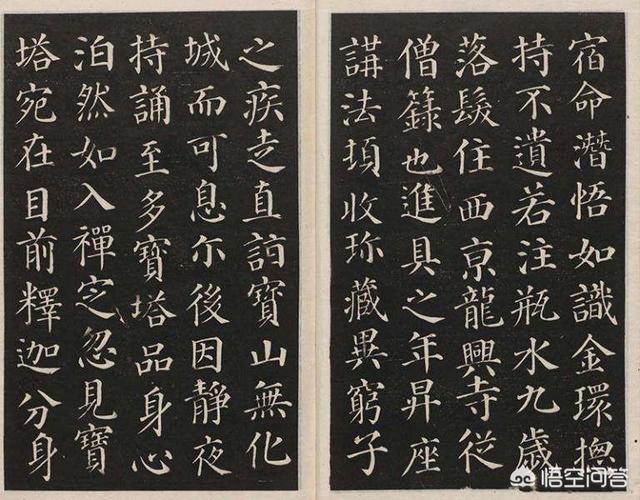 宿命潛悟如識金環揔
持不遺若注瓶水九歲
落髮住西亰龍興寺從
僧籙也進具之年昇座
講法頓收珎藏異窮子
之疾走直詣寶山無化
城而可息尒後因靜夜
持誦至多寶塔品身心
泊然如入禪定忽見寶
塔宛在目前釋迦分身
悟空问答